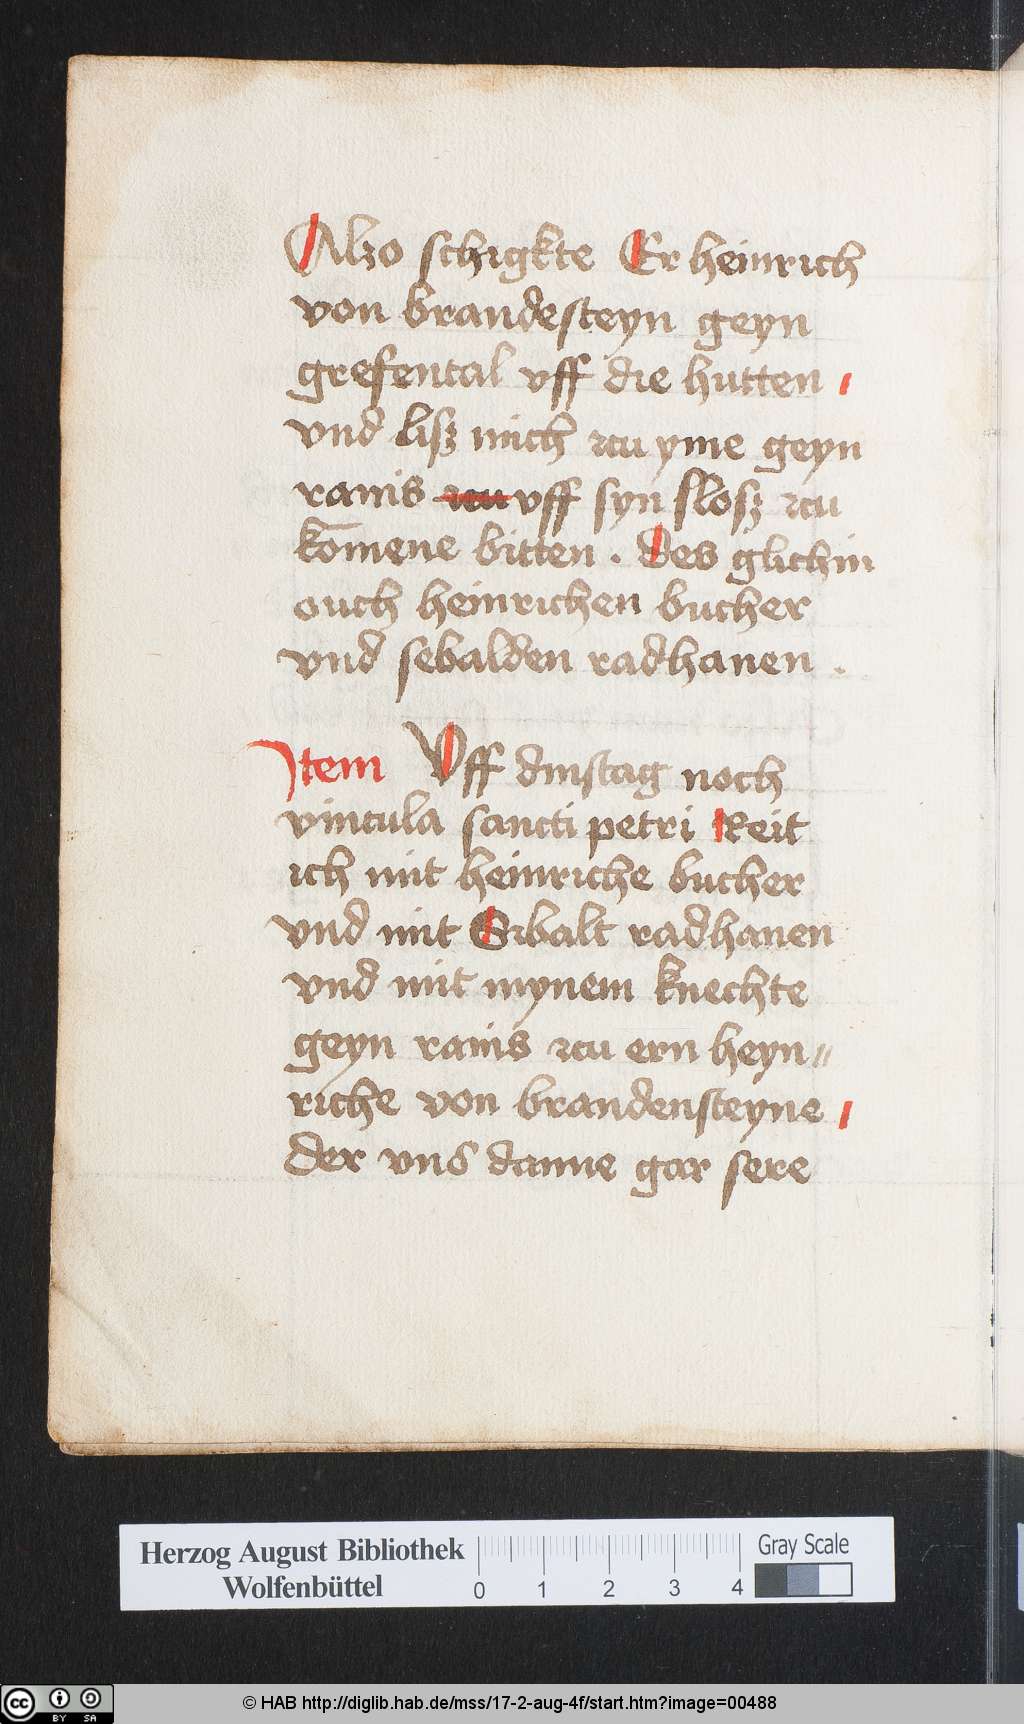 Alzo schigkte Er heinrich
von brandesteyn geyn
grefental vff die hutten
vnd lisz mich zcu yme geyn
ranis zcu vff syn slosz zcu
komene bitten . Des glichin
ouch heinrichen bucher
vnd sebalden radhanen .
Item Vff dinstag noch
vincula sancti petri Reit
ich mit heinriche bucher
vnd mit Sibalt radhanen
vnd mit mynem knechte
geyn ranis zcu ern heyn//
riche von brandensteyne
der vns danne gar sere
Herzog August Bibliothek
Wolfenbüttel
0 1 2 3 4
Gray Scale
cc BY SA
© HAB http://diglib.hab.de/mss/17-2-aug-4f/start.htm?image=00488